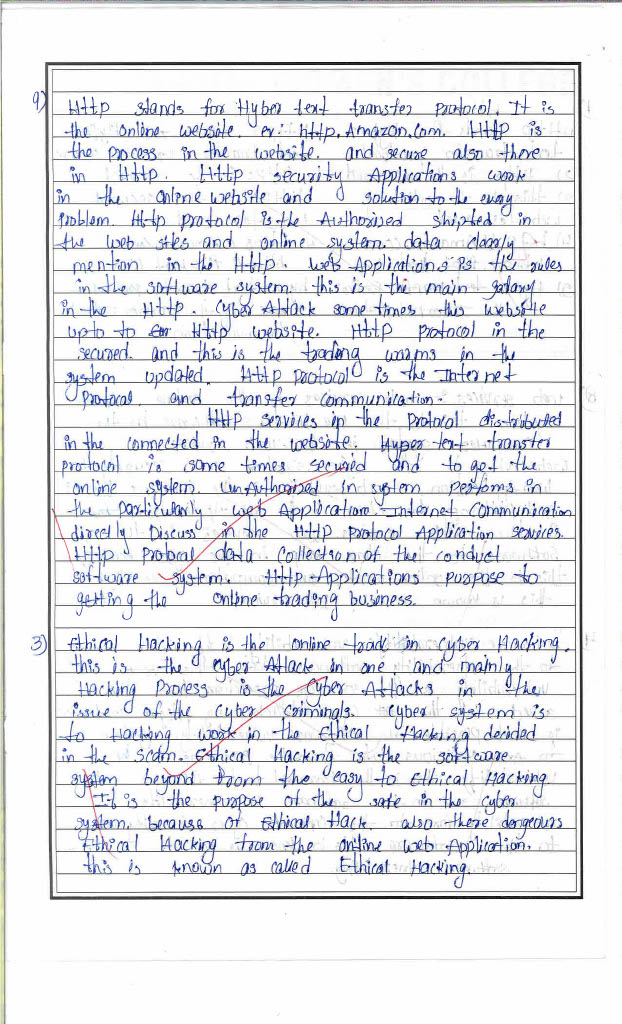 9) Http stands for Hyber text transfer Protocol. It is
the Online website. ex: http. Amazon.Com. HttP is
the process in the website. and secure also there
in Http. Http security Applications work
in the Online website and solution to the every
problem. Http protocol is the Authorised shipted in
the web sites and online system. data clearly
mention in the Http. web Applications is the rules
in the software system. this is the main
in the Http. Cyber Attack some times this website
upto to Http website. Http Protocol in the
secured. and this is the trading in the
system updated. Http Protocol is the Internet
Protocal and transfer Communication.
Http services in the Protocol distributed
in the connected in the website. Hyper text transfer
protocol is some times secured and to get the
online system. UnAuthorised in system performs in
the particularly web Application. Internet Communication
directly Discuss in the Http Protocol Application services.
Http Protocal data Collection of the conduct
software system. Http Applications purpose to
getting the online trading business.
3) Ethical Hacking is the online trad in Cyber Hacking.
this is the cyber Attack in one and mainly
Hacking Process is the Cyber Attacks in the
issue of the cyber criminals. Cyber system is
to Hacking work in the Ethical Hacking decided
in the scam. Ethical Hacking is the software
system beyond from the easy to Ethical Hacking.
It is the purpose of the safe in the cyber
system. because of Ethical Hack. also there dengerours
Ethical Hacking from the online web Application.
this is known as called Ethical Hacking.